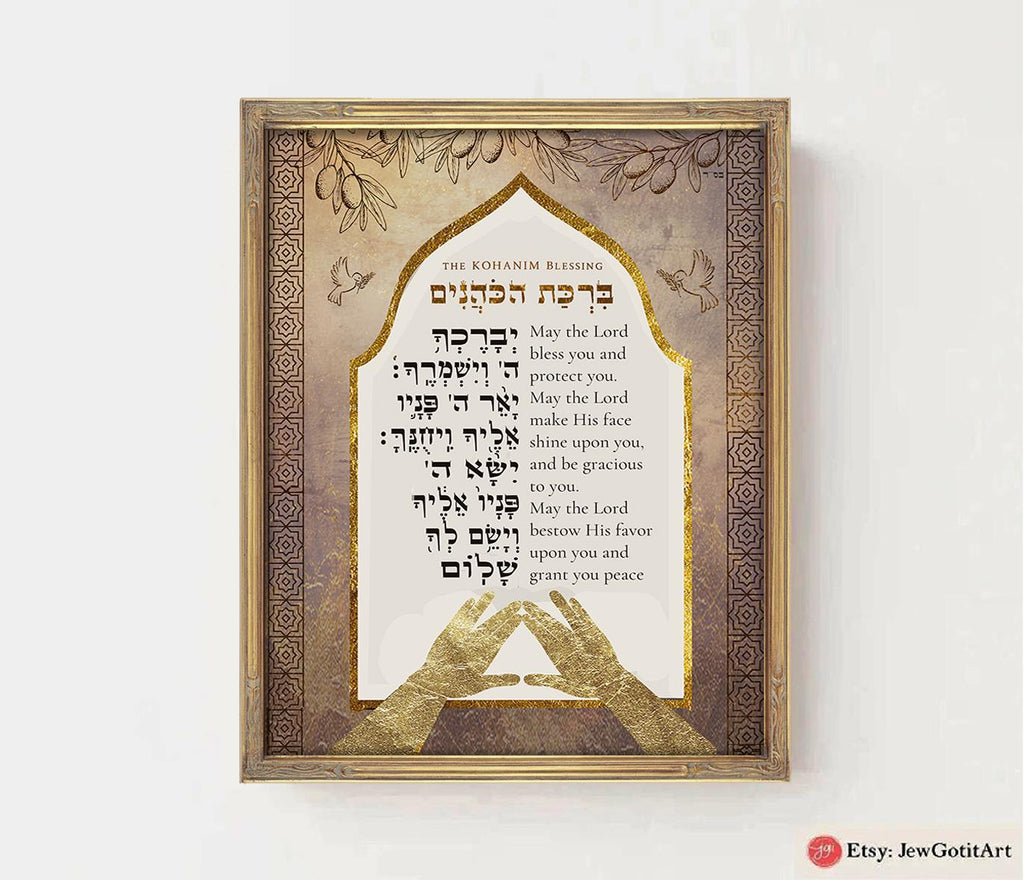 בס"ד
THE KOHANIM BLESSING
בִּרְכַּת הַכֹּהֲנִים
יְבָרֶכְךָ֥
ה' וְיִשְׁמְרֶֽךָ׃
יָאֵ֨ר ה' פָּנָ֛יו
אֵלֶ֖יךָ וִֽיחֻנֶּֽךָּ׃
יִשָּׂ֨א ה'
פָּנָיו֙ אֵלֶ֔יךָ
וְיָשֵׂ֥ם לְךָ֖
שָׁלֽוֹם
May the Lord
bless you and
protect you.
May the Lord
make His face
shine upon you,
and be gracious
to you.
May the Lord
bestow His favor
upon you and
grant you peace
jgi Etsy: JewGotitArt